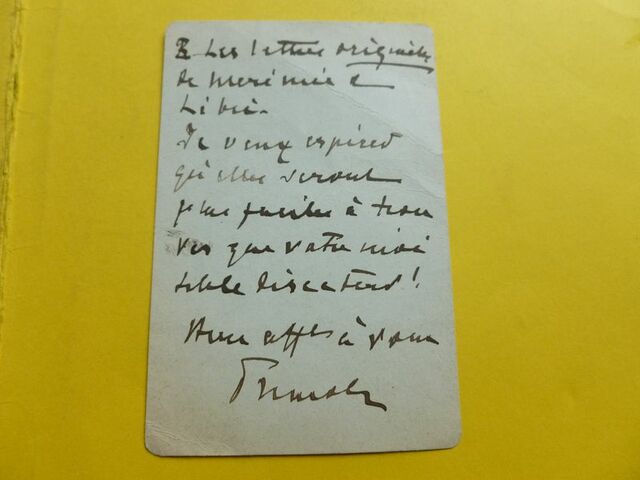 2 Les lettres originales
de Merimée à
Libri.
Je veux espérer
qu'elles seront
plus faciles à trou
ver que votre invi
sible directeur!
affts à vous
Primoli